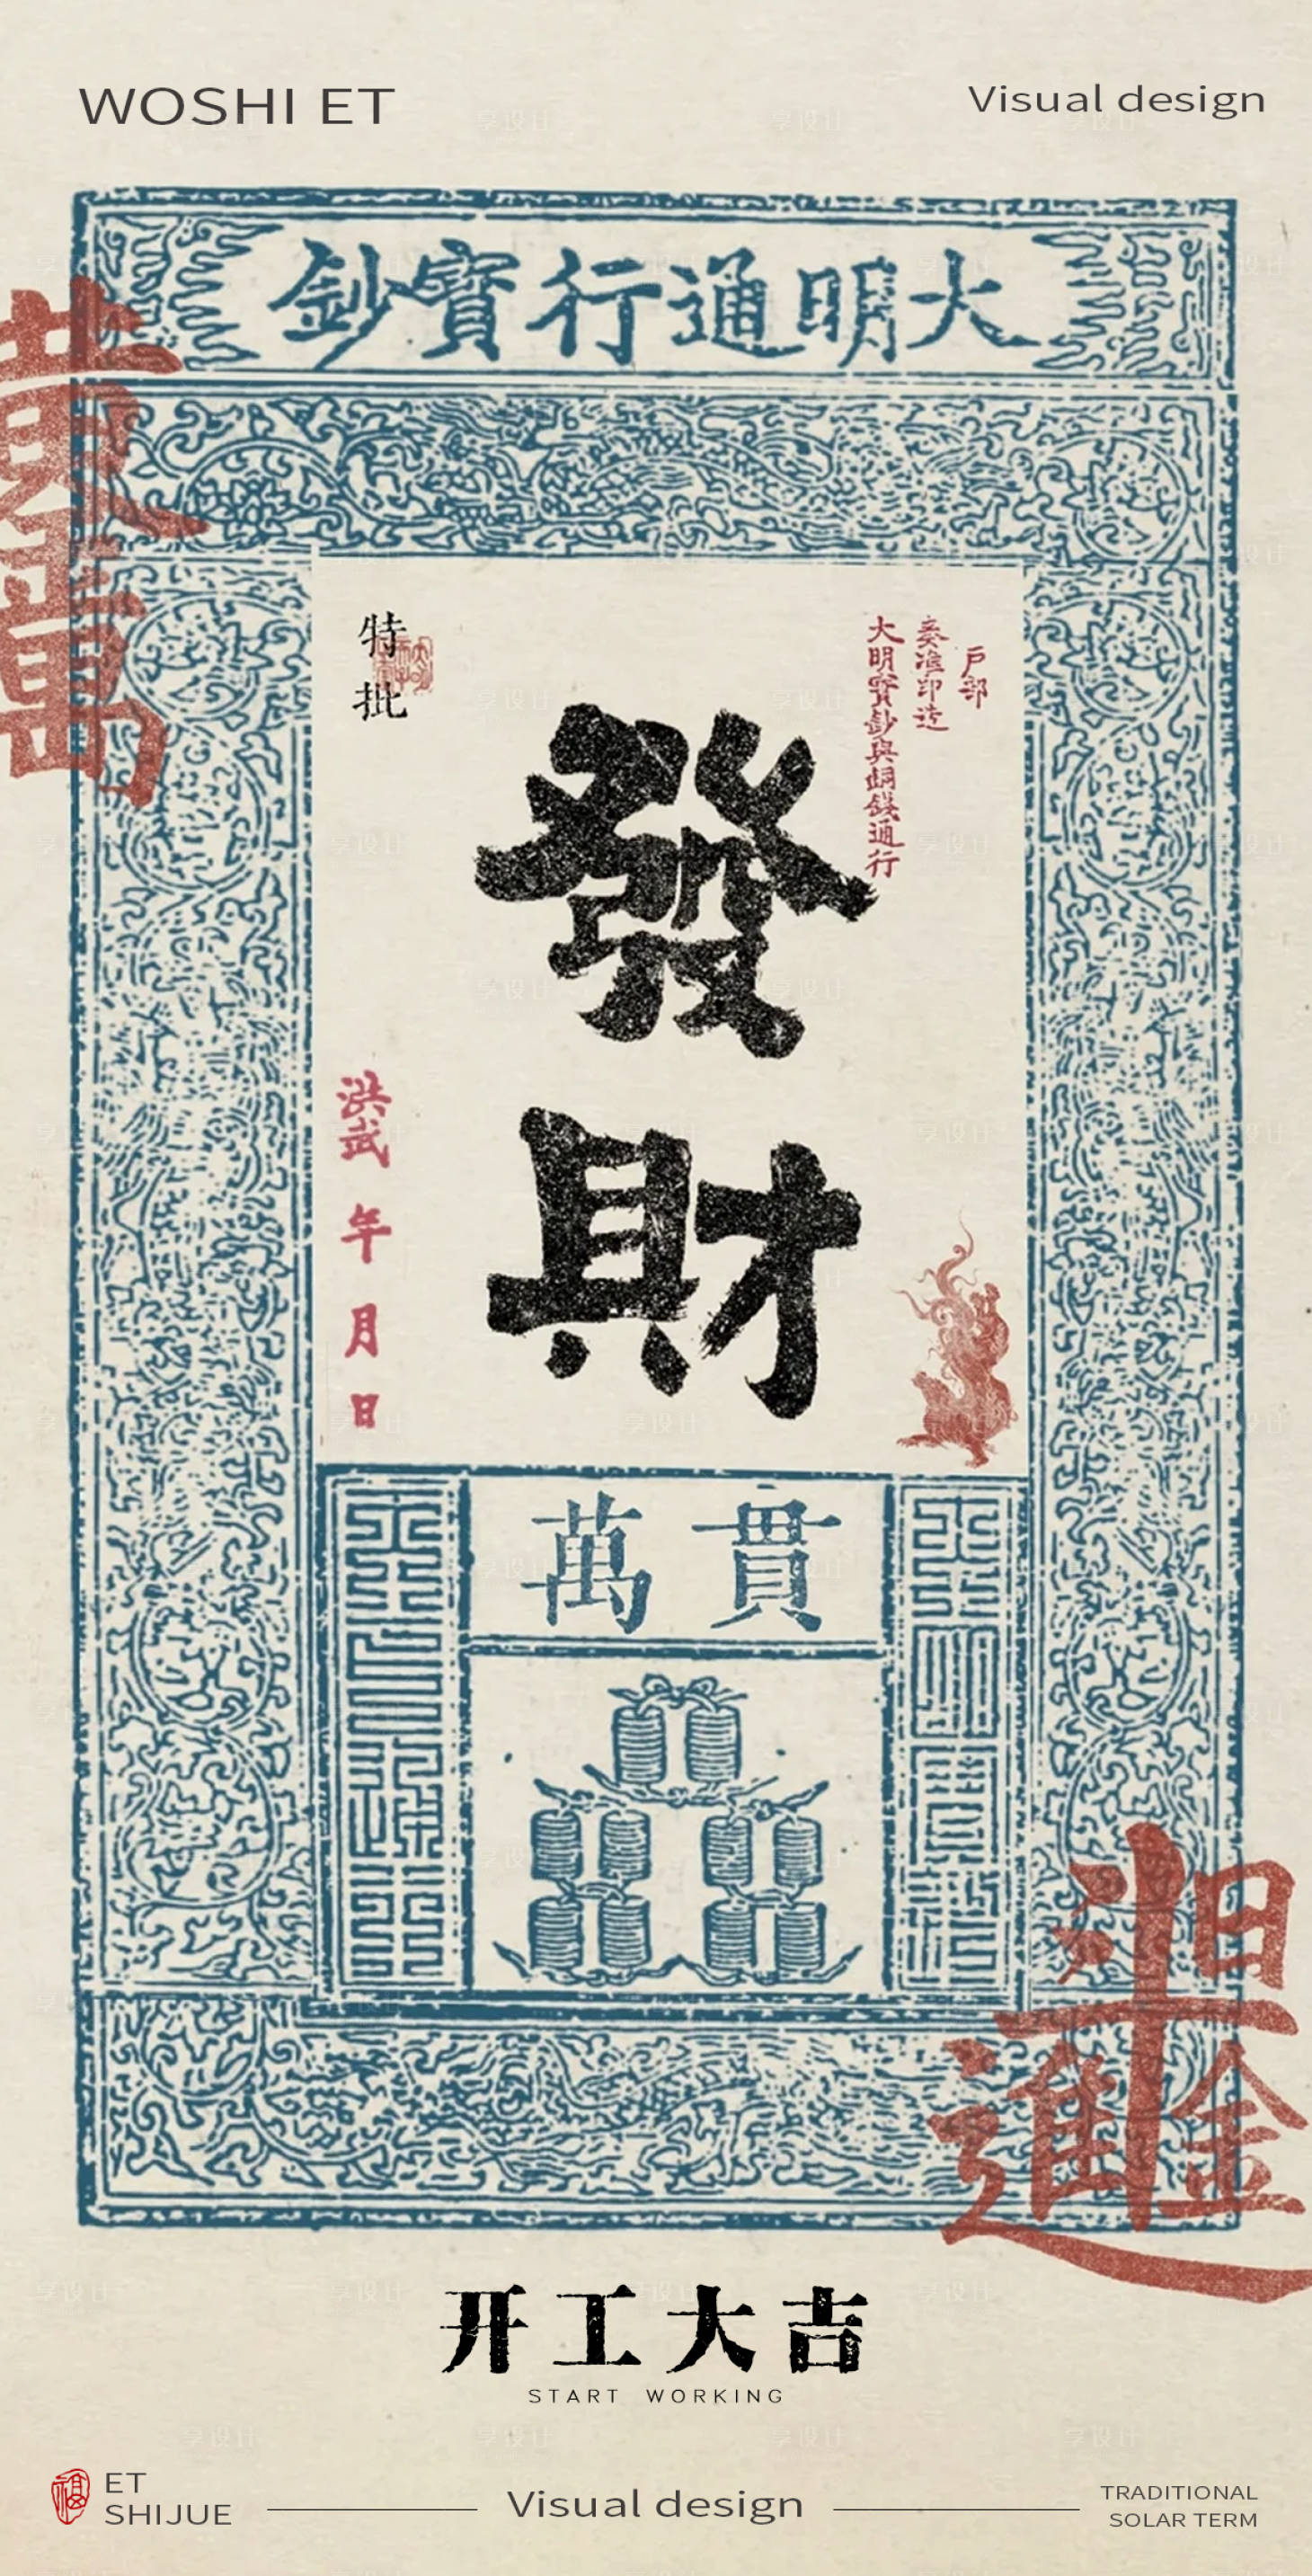 WOSHI ET
Visual design
大明通行寳鈔
戶部
奏準印造
大明寳鈔與銅錢通行
特批
發財
洪武
年
月
日
貫萬
开工大吉
START WORKING
福
ET
SHIJUE
Visual design
TRADITIONAL
SOLAR TERM
享设计